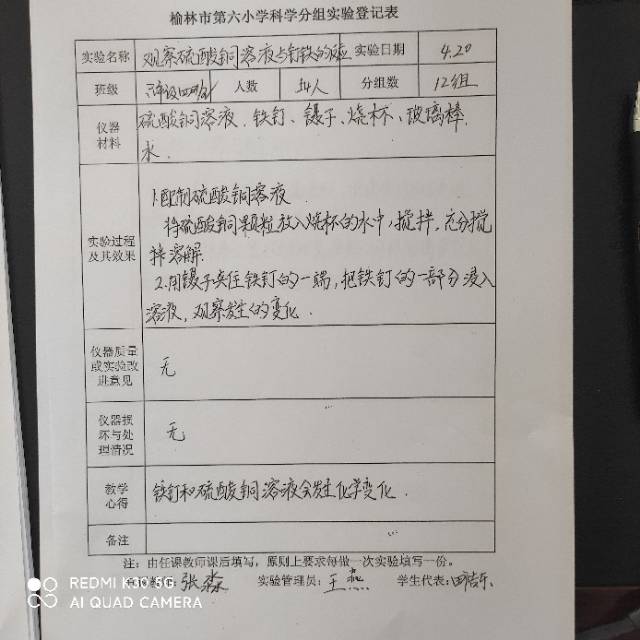 榆林市第六小学科学分组实验登记表
实验名称 观察硫酸铜溶液与钉铁的反应 实验日期 4.20
班级 人数 54人 分组数 12组
仪器材料 硫酸铜溶液、铁钉、镊子、烧杯、玻璃棒、
水.
实验过程及其效果 1.配制硫酸铜溶液
将硫酸铜颗粒放入烧杯的水中,搅拌,充分搅
拌溶解.
2.用镊子夹住铁钉的一端,把铁钉的一部分浸入
溶液,观察发生的变化.
仪器质量或实验改进意见 无
仪器损坏与处理情况 无
教学心得 铁钉和硫酸铜溶液会发生化学变化.
备注
注:由任课教师课后填写,原则上要求每做一次实验填写一份。
张淼 实验管理员:王燕 学生代表:
REDMI K30 5G
AI QUAD CAMERA